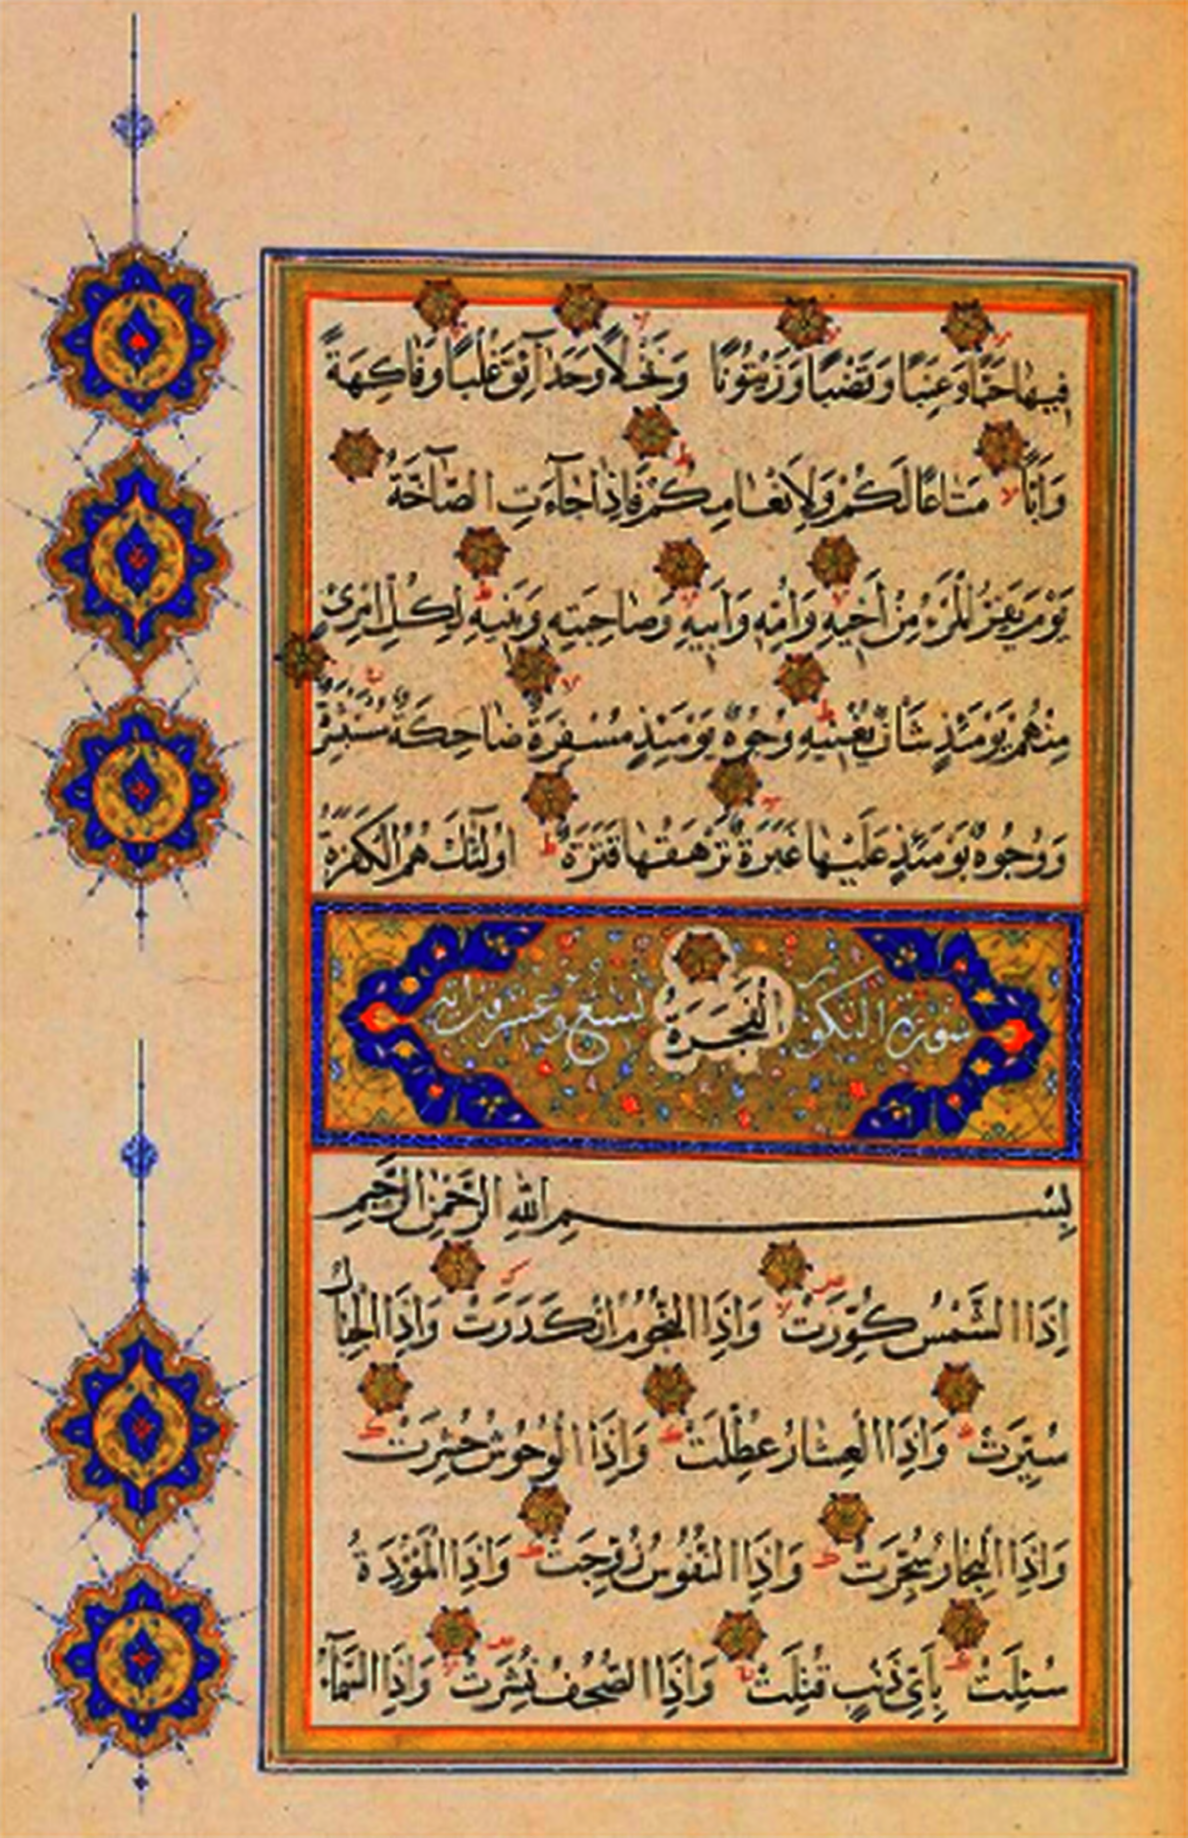 فِيهَا حَبًّا وَعِنَبًا وَقَضْبًا وَزَيْتُونًا وَنَخْلًا وَحَدَآئِقَ غُلْبًا وَفَاكِهَةً
وَاَبًّا مَتَاعًا لَكُمْ وَلِاَنْعَامِكُمْ فَاِذَا جَآءَتِ الصَّآخَّةُ
يَوْمَ يَفِرُّ الْمَرْءُ مِنْ اَخِيهِ وَاُمِّهِ وَاَبِيهِ وَصَاحِبَتِهِ وَبَنِيهِ لِكُلِّ امْرِئٍ
مِنْهُمْ يَوْمَئِذٍ شَاْنٌ يُغْنِيهِ وُجُوهٌ يَوْمَئِذٍ مُسْفِرَةٌ ضَاحِكَةٌ مُسْتَبْشِرَةٌ
وَوُجُوهٌ يَوْمَئِذٍ عَلَيْهَا غَبَرَةٌ تَرْهَقُهَا قَتَرَةٌ اُولٰئِكَ هُمُ الْكَفَرَةُ
الْفَجَرَةُ
سورة التكوير تسع وعشرون اية
بِسْمِ اللهِ الرَّحْمٰنِ الرَّحِيمِ
اِذَا الشَّمْسُ كُوِّرَتْ وَاِذَا النُّجُومُ انْكَدَرَتْ وَاِذَا الْجِبَالُ
سُيِّرَتْ وَاِذَا الْعِشَارُ عُطِّلَتْ وَاِذَا الْوُحُوشُ حُشِرَتْ
وَاِذَا الْبِحَارُ سُجِّرَتْ وَاِذَا النُّفُوسُ زُوِّجَتْ وَاِذَا الْمَوْؤُدَةُ
سُئِلَتْ بِاَيِّ ذَنْبٍ قُتِلَتْ وَاِذَا الصُّحُفُ نُشِرَتْ وَاِذَا السَّمَآءُ